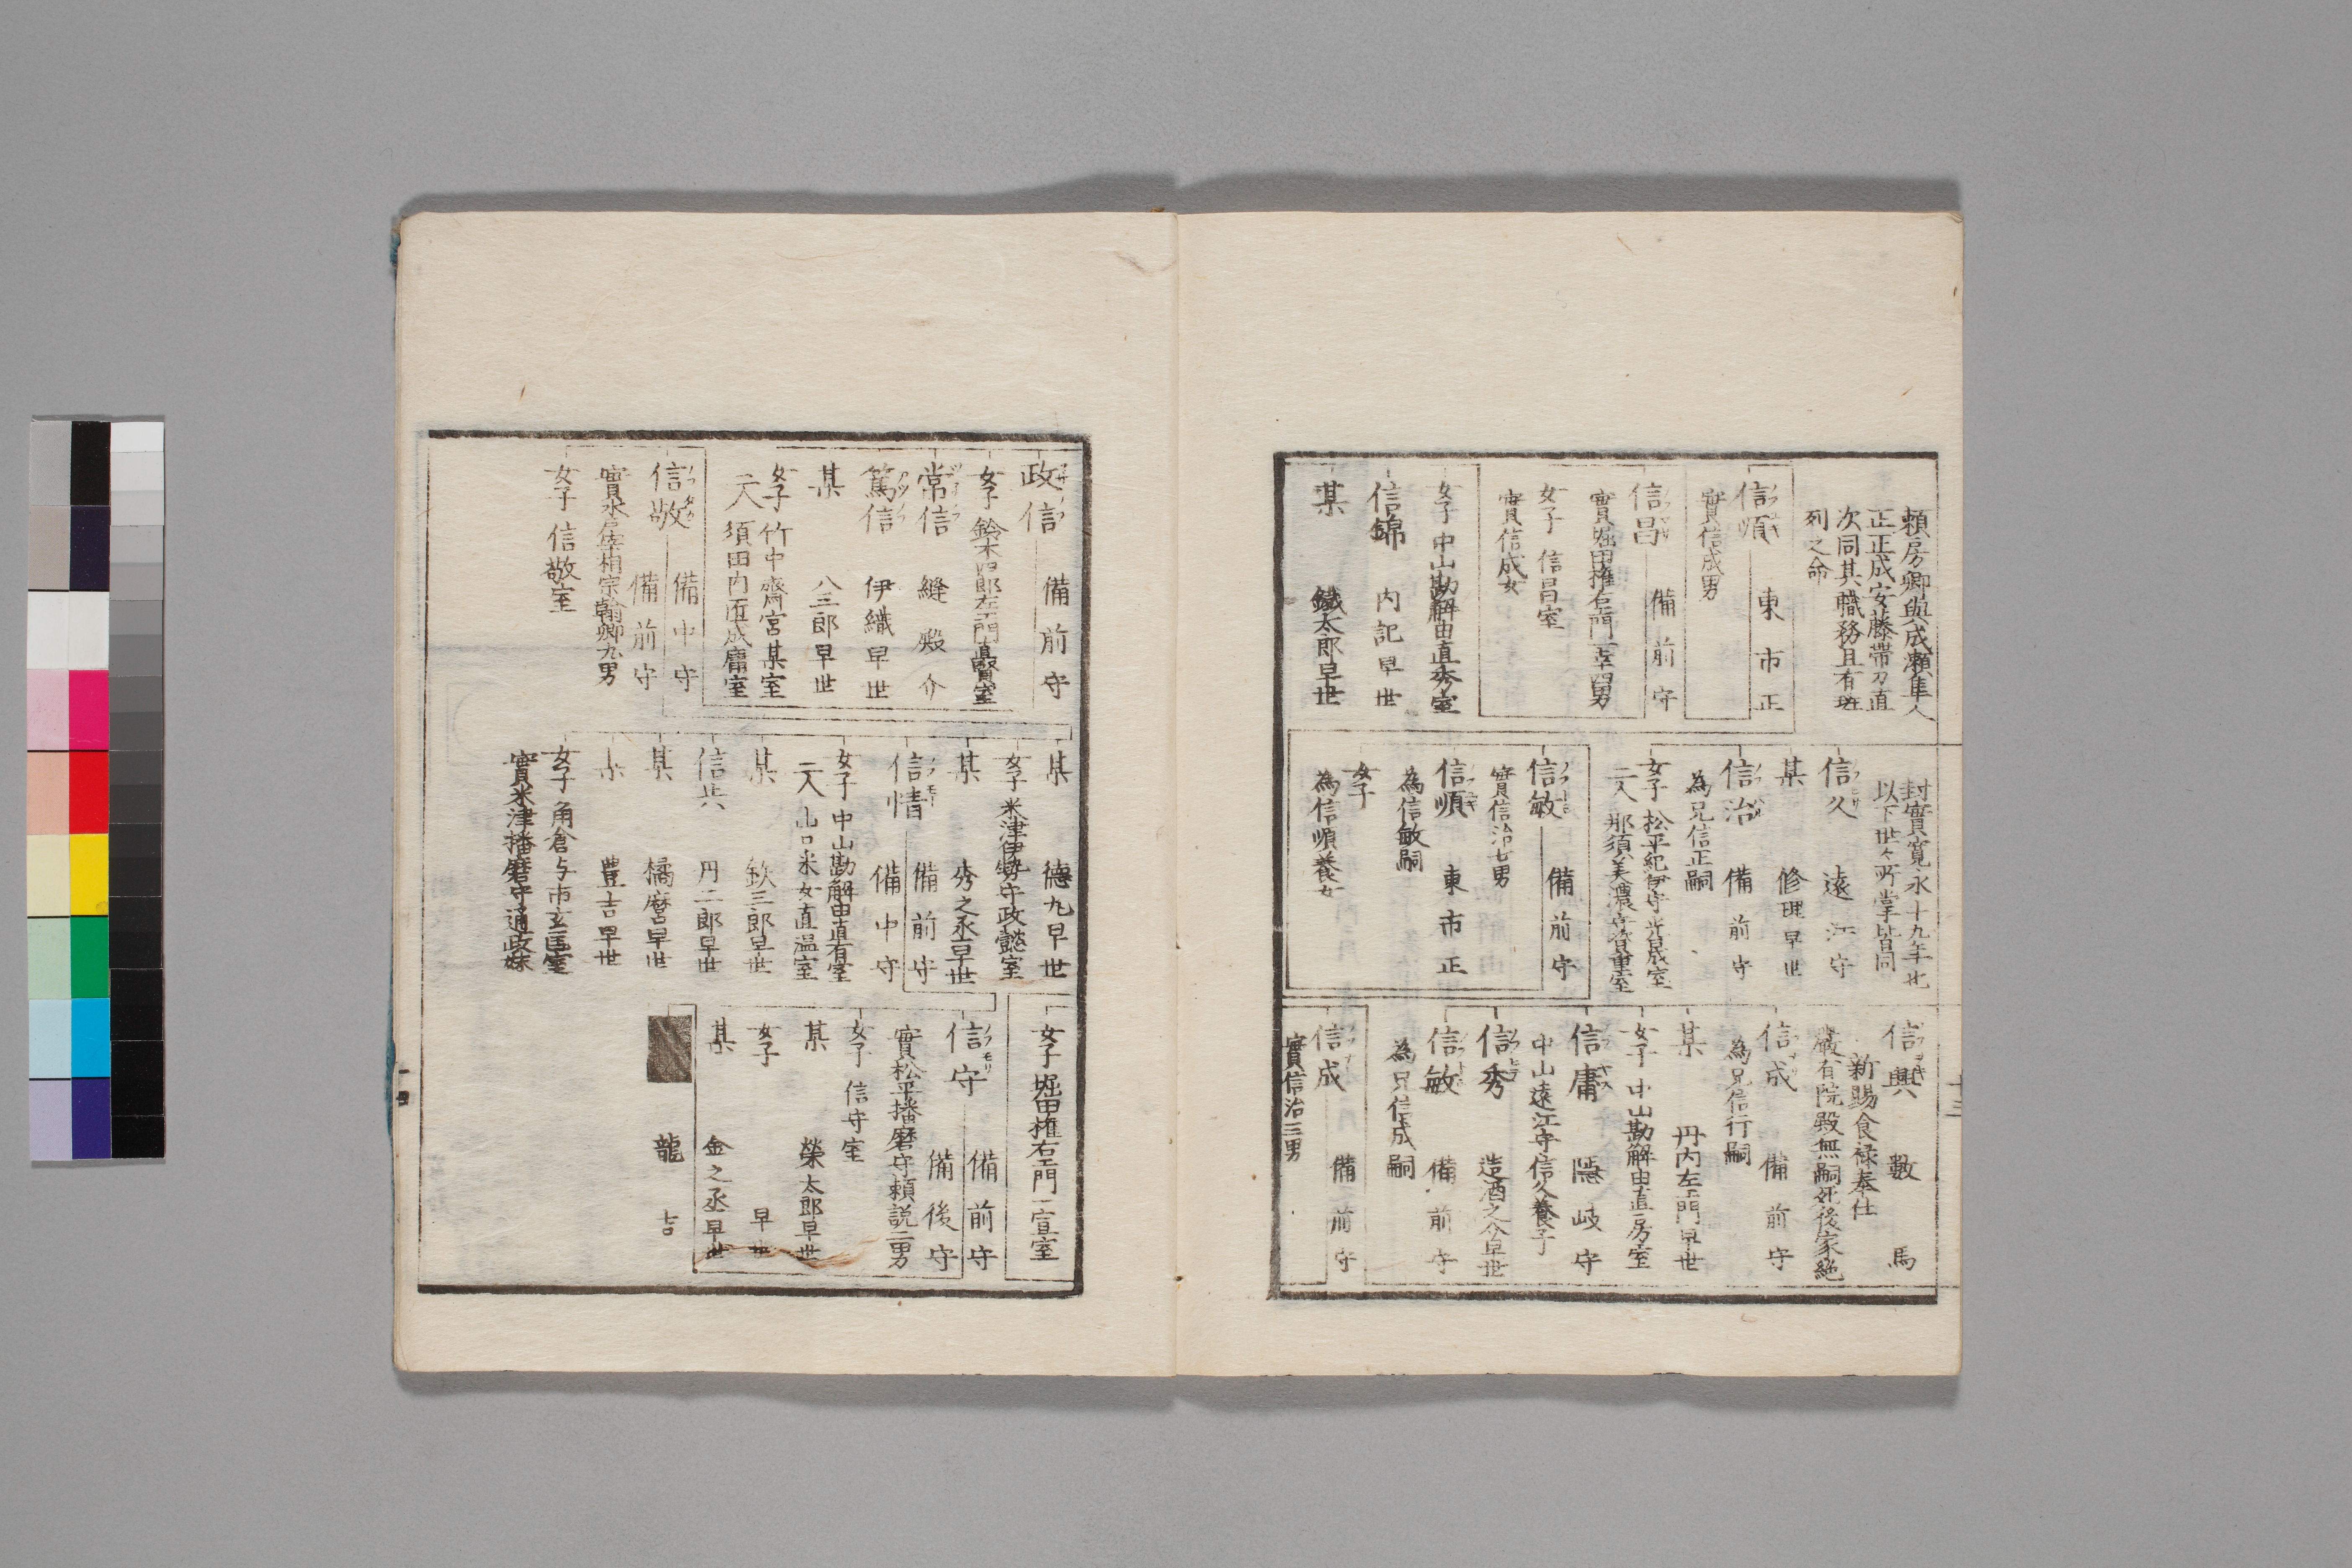 頼房卿與成瀬隼人
正正成安藤帯刀直
次同其職務且有班
列之命
信順　東市正
實信成男
信昌　備前守
實堀田権右門一幸四男
女子　信昌室
實信成女
女子　中山勘解由直秀室
信錦　内記早世
某　鐵太郎早世
封實寛永十九年也
以下世々所掌皆同
信久　遠江守
某　修理早世
信治　備前守
為兄信正嗣
女子　松平紀伊守光晟室
二人　那須美濃守資重室
信敏　備前守
實信治七男
信順　東市正
為信敏嗣
女子
為信順養女
信興　數馬
新賜食禄奉仕
嚴有院殿無嗣死後家絶
信成　備前守
為兄信行嗣
某　丹内左門早世
女子　中山勘解由直房室
信庸　隠岐守
中山遠江守信久養子
信秀　造酒之介早世
信敏　備前守
為兄信成嗣
信成　備前守
實信治三男
十三
政信　備前守
女子　鈴木四郎左門直賢室
常信　縫殿介
篤信　伊織早世
某　八三郎早世
女子　竹中齋宮某室
二人　須田内匠盛庸室
信敬　備中守
備前守
實水戸宰相宗翰卿九男
女子　信敬室
某　德九早世
女子　米津伊勢守政懿室
某　秀之丞早世
信情　備前守
備中守
女子　中山勘解由直有室
二人　山口采女直温室
某　欽三郎早世
信共　丹二郎早世
某　橘麿早世
某　豊吉早世
女子　角倉与市玄匡室
實米津播磨守通政妹
女子　堀田権右門一宣室
信守　備前守
備後守
實松平播磨守頼説二男
女子　信守室
某　榮太郎早世
女子　早世
某　金之丞早世
龍吉